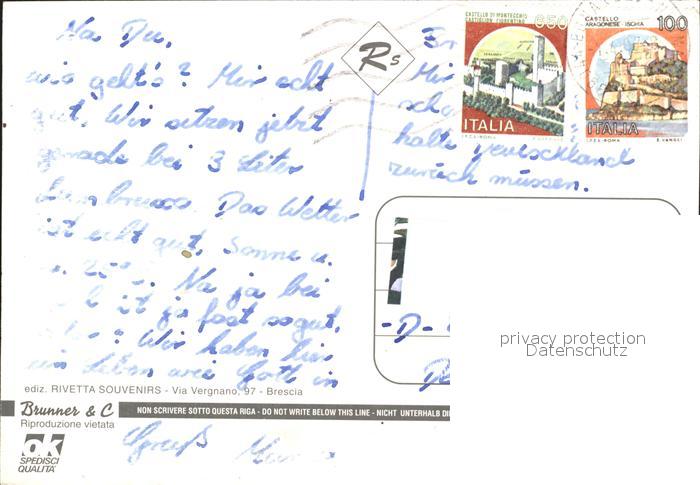 Na Du,
wie geht's? Mir echt
gut. Wir sitzen jetzt
gerade bei 3 Liter
Lambrusco. Das Wetter
ist echt gut, Sonne u.
25°. Na ja bei
ist ja fast so gut,
? Wir haben hier
ein Leben wie Gott in
Rs
Mir
halte Deutschland
zurück müssen.
CASTELLO DI MONTECCHIO
CASTIGLION FIORENTINO
650
ITALIA
I.P.Z.S.-ROMA
CASTELLO
ARAGONESE - ISCHIA
100
ITALIA
I.P.Z.S.-ROMA E. VANGELLI
-D-
privacy protection
Datenschutz
ediz. RIVETTA SOUVENIRS - Via Vergnano, 97 - Brescia
Brunner & C
NON SCRIVERE SOTTO QUESTA RIGA - DO NOT WRITE BELOW THIS LINE - NICHT UNTERHALB DI
Riproduzione vietata
ok
SPEDISCI
QUALITÀ
Gruß